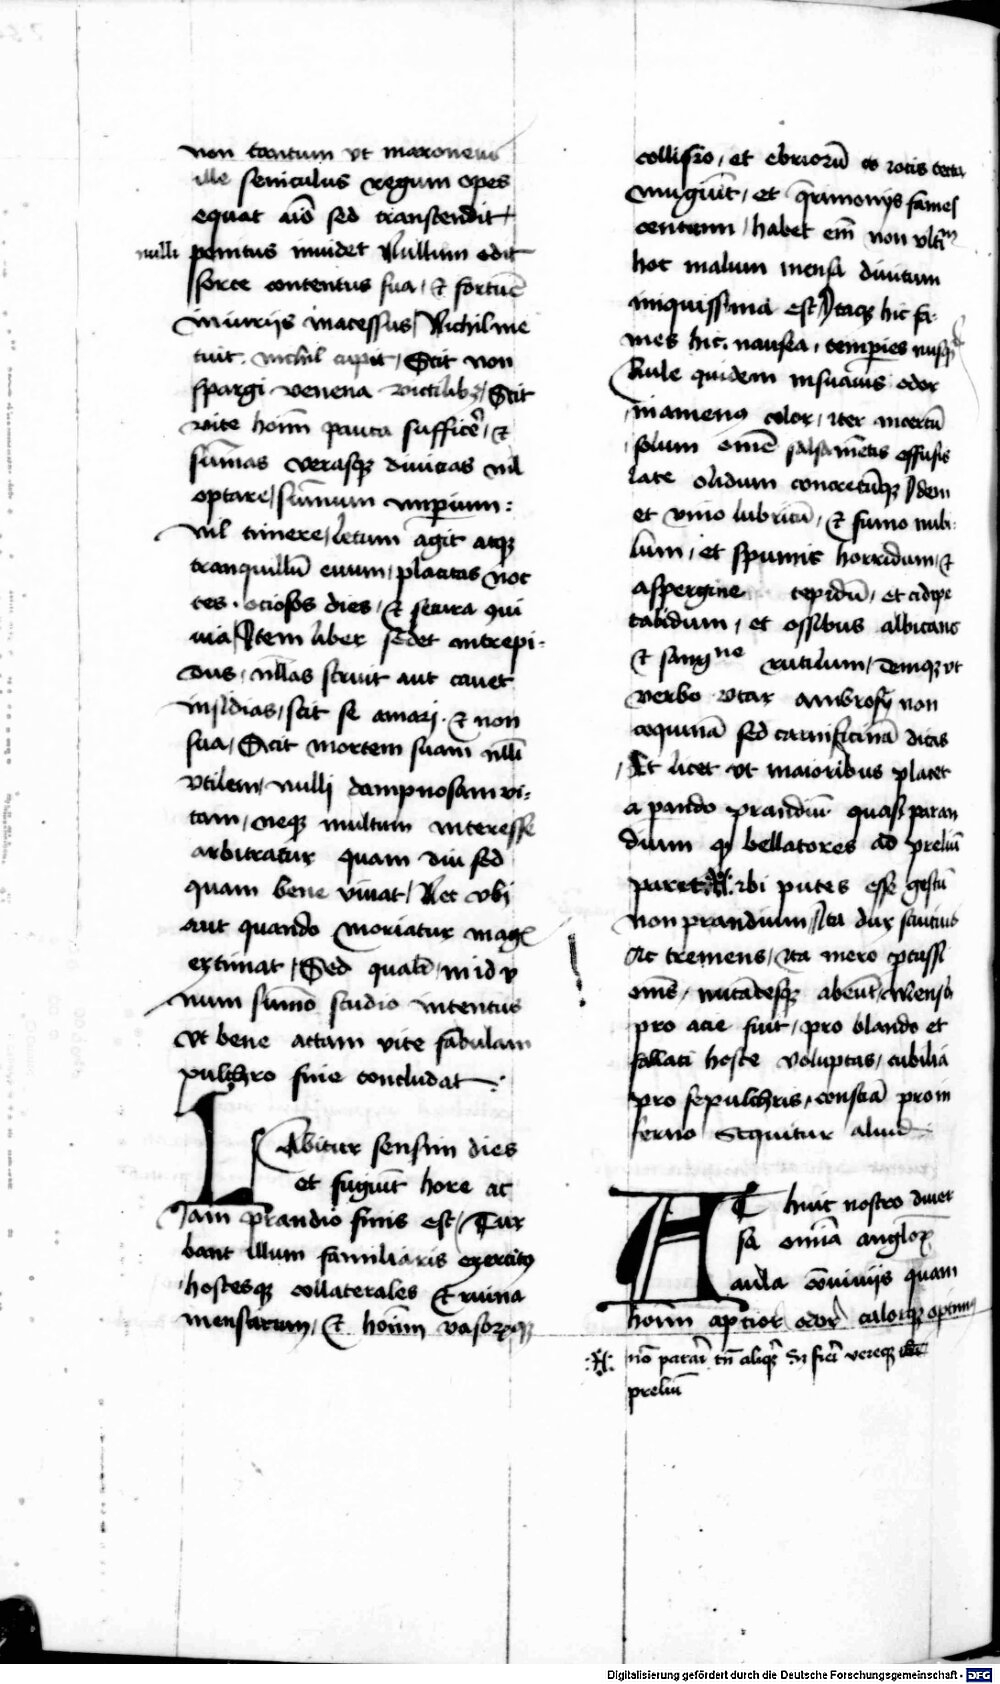 non tantum vt maroneus
ille seniculus regum opes
equat aīo sed transcendit
nulli penitus inuidet Nullum odit
sorte contentus sua / et fortūe
iniurijs inacessus / Nichil me
tuit. nichil cupit / Scit non
spargi venena victilibꝫ / Scit
vite hoīm pauca sufficē / et
sūmas verasqꝫ diuicias nil
optare / sūmum imperium :
nil timere / letum agit atqꝫ
tranquillū euum / placitas noc
tes . ociosos dies / et secura qui
uia / Item liber sedet intrepi-
dus / nllas struit aut cauet
insidias / scit se amari . et non
sua / Scit mortem suam nlli
vtilem / nulli dampnosam vi-
tam / neqꝫ multum interesse
arbitratur quam diu sed
quam bene viuat / Nec vbi
aut quando moriatur mag
extimat / Sed qualr̄ / in id v
num sūmo studio intentus
vt bene actam vite fabulam
pulchro fine concludat
Labitur sensim dies
et fugiūt hore ac
Iam prandio finis est / Tur
bant illum familiaris exercitꝰ
hostesqꝫ collaterales Et ruina
mensarum / Et hoīm vasorqꝫ
collisio / et ebriorū
mugiūt / et q̄rimonijs fames
centum / habet em̄ non vltīm
hoc malum mensa diuitum
iniquissima est / Itaqꝫ hic fa-
mes hic . nausea . temperies nusq̄
Aule quidem insuauis odor
inamenꝰ color / iter incertū
solum omē salsamētis effusis
late olidum concretūqꝫ Idem
et vino lubricū / et fumo nubi-
lum / et spumis horridum / et
aspergine tepidū / et
tabidum / et ossibus albicans
et sangne rutilum / Deniqꝫ vt
verbo vtar ambrosij non
coquinā sed carnificinā dicas
Et licet vt maioribus placet
a parando prandiū quasi paran
dium qꝫ bellatores ad preliū
paret vbi putes esse gestū
non prandium / Ita dux saucius
Ac tremens / ita mero pcussi
omēs / nutātesqꝫ abeūt / Mensa
pro acie fuit / pro blando et
fallaci hoste voluptas / cubilia
pro sepulchris / conscia pro in
ferno Sequitur aliud
AT huic nostro diuer
sa omīa anglorꝫ
aula cōuiuijs quam
hoīm aptior odor calorqꝫ optimꝰ
nō parārī tn̄ aliqꝫ sn fierī vereqꝫ
preliū
Digitalisierung gefördert durch die Deutsche Forschungsgemeinschaft - DFG